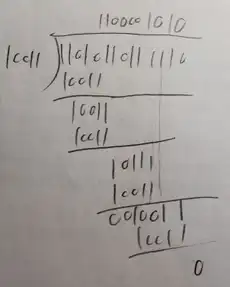 1100001010
10011 11010110111110
10011
10011
10011
10111
10011
0010011
10011
0